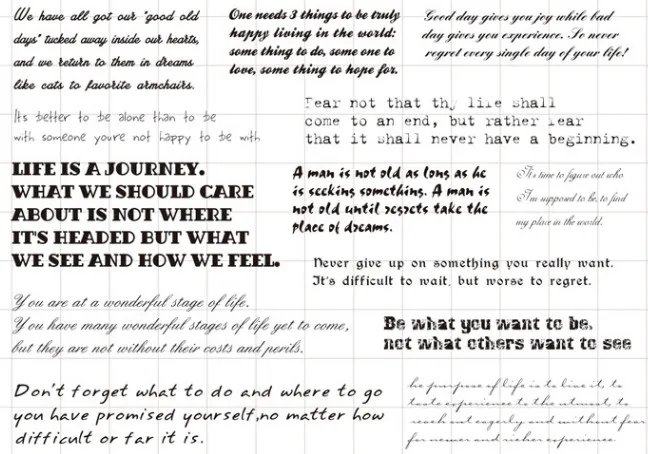 We have all got our "good old
days" tucked away inside our hearts,
and we return to them in dreams
like cats to favorite armchairs.
One needs 3 things to be truly
happy living in the world:
some thing to do, some one to
love, some thing to hope for.
Good day gives you joy while bad
day gives you experience. So never
regret every single day of your life!
It's better to be alone than to be
with someone you're not happy to be with
Fear not that thy life shall
come to an end, but rather fear
that it shall never have a beginning.
LIFE IS A JOURNEY.
WHAT WE SHOULD CARE
ABOUT IS NOT WHERE
IT'S HEADED BUT WHAT
WE SEE AND HOW WE FEEL.
A man is not old as long as he
is seeking something. A man is
not old until regrets take the
place of dreams.
It's time to figure out who
I'm supposed to be, to find
my place in the world.
Never give up on something you really want.
It's difficult to wait, but worse to regret.
You are at a wonderful stage of life.
You have many wonderful stages of life yet to come,
but they are not without their costs and perils.
Be what you want to be,
not what others want to see
Don't forget what to do and where to go
you have promised yourself,no matter how
difficult or far it is.
he purpose of life is to live it, to
taste experience to the utmost, to
reach out eagerly and without fear
for newer and richer experience.